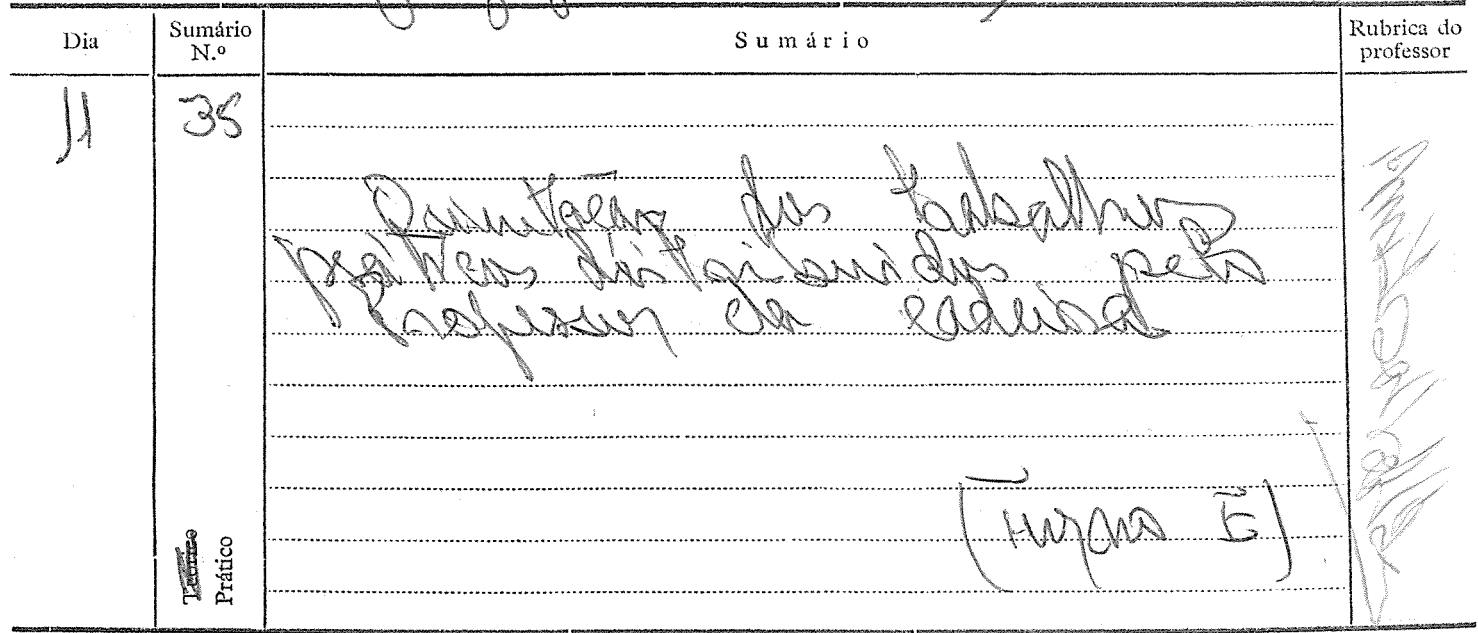 Dia
Sumário N.º
Sumário
Rubrica do professor
11
35
dos trabalhos
práticos distribuidos pelo
Professor da cadeira
(Turma E)
Teórico
Prático